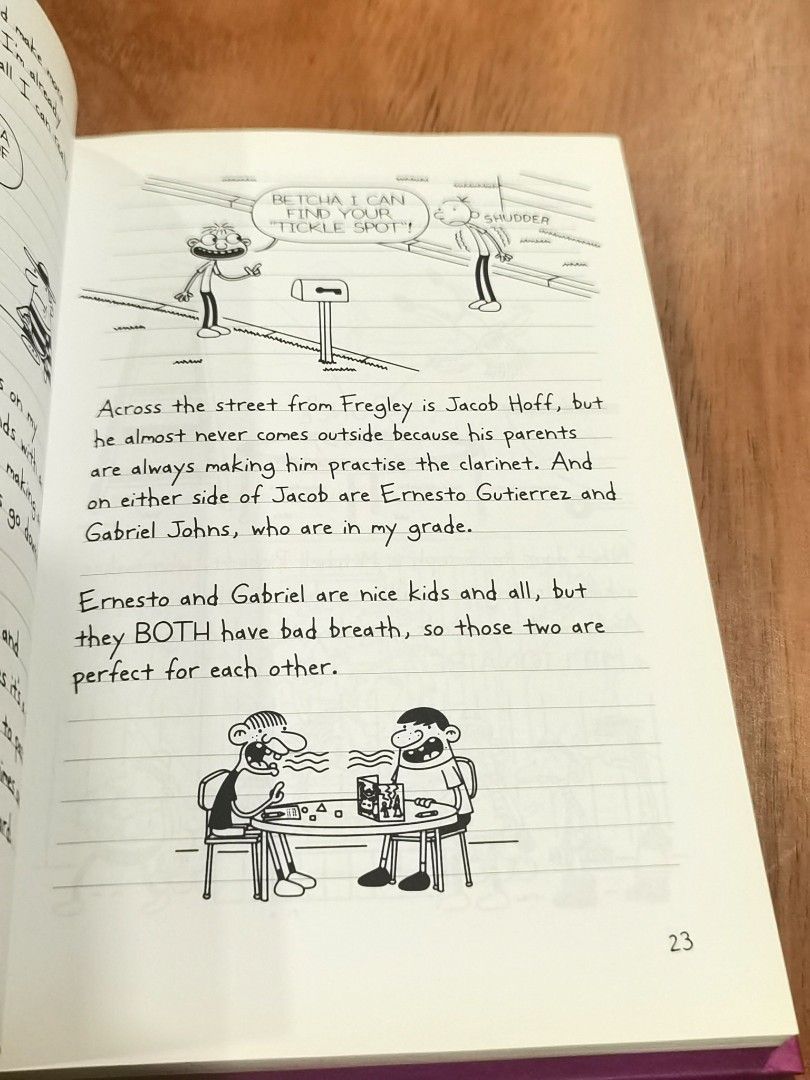 d make more
I'm already
all I can
BETCHA I CAN
FIND YOUR
"TICKLE SPOT"!
SHUDDER
Across the street from Fregley is Jacob Hoff, but
he almost never comes outside because his parents
are always making him practise the clarinet. And
on either side of Jacob are Ernesto Gutierrez and
Gabriel Johns, who are in my grade.
Ernesto and Gabriel are nice kids and all, but
they BOTH have bad breath, so those two are
perfect for each other.
23
s on my
making
go down
and
s it's
to